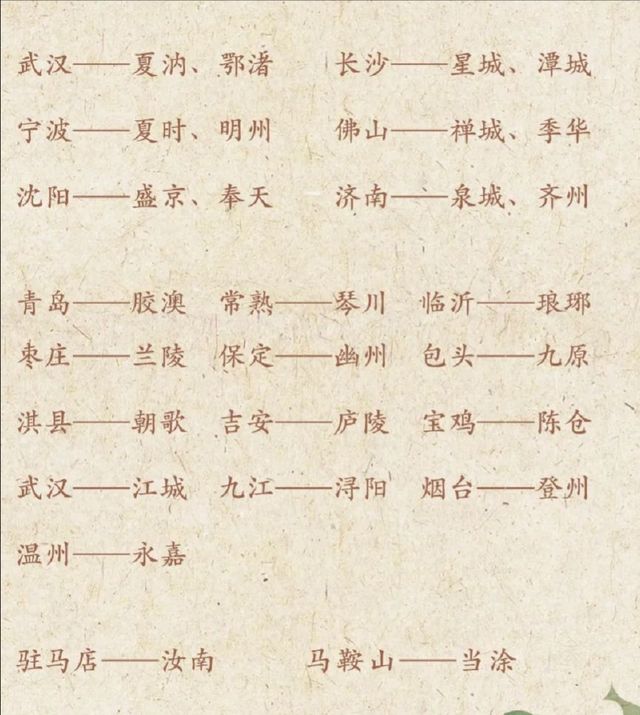 武汉——夏汭、鄂渚 长沙——星城、潭城
宁波——夏时、明州 佛山——禅城、季华
沈阳——盛京、奉天 济南——泉城、齐州
青岛——胶澳 常熟——琴川 临沂——琅琊
枣庄——兰陵 保定——幽州 包头——九原
淇县——朝歌 吉安——庐陵 宝鸡——陈仓
武汉——江城 九江——浔阳 烟台——登州
温州——永嘉
驻马店——汝南 马鞍山——当涂